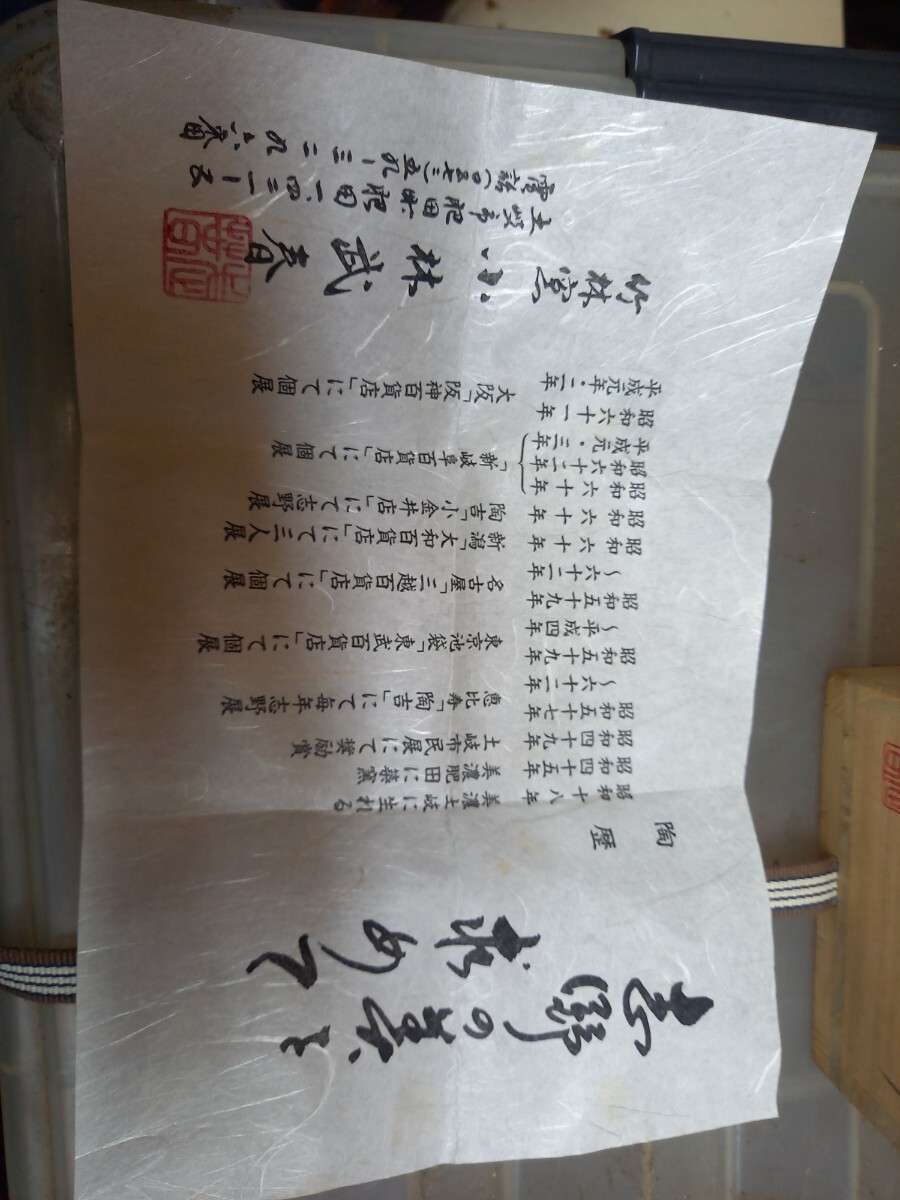 志野の美を
求めて
陶歴
昭和十八年 美濃土岐に生れる
昭和四十五年 美濃肥田に築窯
昭和四十九年 土岐市民展にて奨励賞
昭和五十七年
〜六十二年 恵比寿「陶吉」にて毎年志野展
昭和五十九年
〜平成四年 東京池袋「東武百貨店」にて個展
昭和五十九年
〜六十二年 名古屋「三越百貨店」にて個展
昭和六十年 新潟「大和百貨店」にて三人展
昭和六十年 陶吉「小金井店」にて志野展
昭和六十年
昭和六十二年 「新岐阜百貨店」にて個展
平成元・三年
昭和六十一年
平成元年・二年 大阪「阪神百貨店」にて個展
竹林窯 小林武春
土岐市肥田町肥田一四三一ー五
電話(〇五七二)五九ー三二九六番